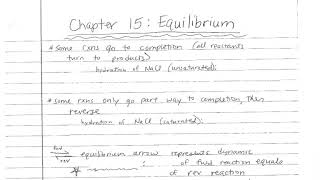 Chapter 15: Equilibrium
* some rxns go to completion (all reactants
turn to products)
hydration of NaCl (unsaturated):
* some rxns only go part way to completion, then
reverse
hydration of NaCl (saturated):
fwd
rev
equilibrium arrow represents dynamic
of fwd reaction equals
of rev reaction